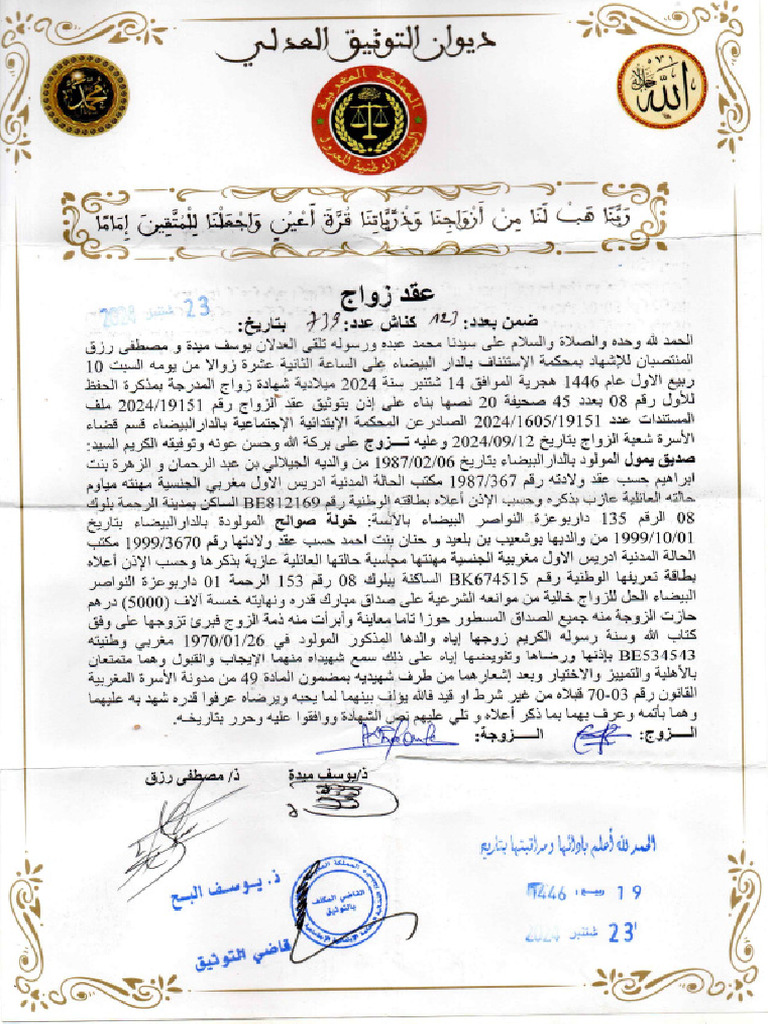 ديوان التوثيق العدلي
محمد
الله جل جلاله
المملكة المغربية
الهيئة الوطنية للعدول
رَبَّنَا هَبْ لَنَا مِنْ أَزْوَاجِنَا وَذُرِّيَّاتِنَا قُرَّةَ أَعْيُنٍ وَاجْعَلْنَا لِلْمُتَّقِينَ إِمَامًا
عقد زواج
ضمن بعدد: 127 كناش عدد: 739 بتاريخ: 23 شتنبر 2024
الحمد لله وحده والصلاة والسلام على سيدنا محمد عبده ورسوله تلقى العدلان يوسف ميدة و مصطفى رزق
المنتصبان للإشهاد بمحكمة الإستئناف بالدار البيضاء على الساعة الثانية عشرة زوالا من يومه السبت 10
ربيع الاول عام 1446 هجرية الموافق 14 شتنبر سنة 2024 ميلادية شهادة زواج المدرجة بمذكرة الحفظ
للأول رقم 08 بعدد 45 صحيفة 20 نصها بناء على إذن بتوثيق عقد الزواج رقم 2024/19151 ملف
المستندات عدد 2024/1605/19151 الصادرعن المحكمة الإبتدائية الإجتماعية بالدارالبيضاء قسم قضاء
الأسرة شعبة الزواج بتاريخ 2024/09/12 وعليه تـــزوج على بركة الله وحسن عونه وتوفيقه الكريم السيد:
صديق يمول المولود بالدارالبيضاء بتاريخ 1987/02/06 من والديه الجيلالي بن عبد الرحمان و الزهرة بنت
ابراهيم حسب عقد ولادته رقم 1987/367 مكتب الحالة المدنية ادريس الاول مغربي الجنسية مهنته مياوم
حالته العائلية عازب بذكره وحسب الإذن أعلاه بطاقته الوطنية رقم BE812169 الساكن بمدينة الرحمة بلوك
08 الرقم 135 داربوعزة النواصر البيضاء بالآنسة: خولة صوالح المولودة بالدارالبيضاء بتاريخ
1999/10/01 من والديها بوشعيب بن بلعيد و حنان بنت احمد حسب عقد ولادتها رقم 1999/3670 مكتب
الحالة المدنية ادريس الاول مغربية الجنسية مهنتها محاسبة حالتها العائلية عازبة بذكرها وحسب الإذن أعلاه
بطاقة تعريفها الوطنية رقم BK674515 الساكنة ببلوك 08 رقم 153 الرحمة 01 داربوعزة النواصر
البيضاء الحل للزواج خالية من موانعه الشرعية على صداق مبارك قدره ونهايته خمسة آلاف (5000) درهم
حازت الزوجة منه جميع الصداق المسطور حوزا تاما معاينة وأبرأت منه ذمة الزوج فبرئ تزوجها على وفق
كتاب الله وسنة رسوله الكريم زوجها إياه والدها المذكور المولود في 1970/01/26 مغربي وطنيته
BE534543 بإذنها ورضاها وتفويضها إياه على ذلك سمع شهيداه منهما الإيجاب والقبول وهما متمتعان
بالأهلية والتمييز والاختيار وبعد إشعارهما من طرف شهيديه بمضمون المادة 49 من مدونة الأسرة المغربية
القانون رقم 03-70 قبلاه من غير شرط او قيد فالله يؤلف بينهما لما يحبه ويرضاه عرفوا قدره شهد به عليهما
وهما بأتمه وعرف بهما بما ذكر أعلاه و تلي عليهم نص الشهادة ووافقوا عليه وحرر بتاريخه.
الـــزوج: الـــزوجة:
ذ/يوسف ميدة ذ/ مصطفى رزق
الحمد لله أعلم بأدائها ومراقبتها بتاريخ
19 1446
23 شتنبر 2024
ذ. يوسف البح
القاضي المكلف بالتوثيق
قاضي التوثيق